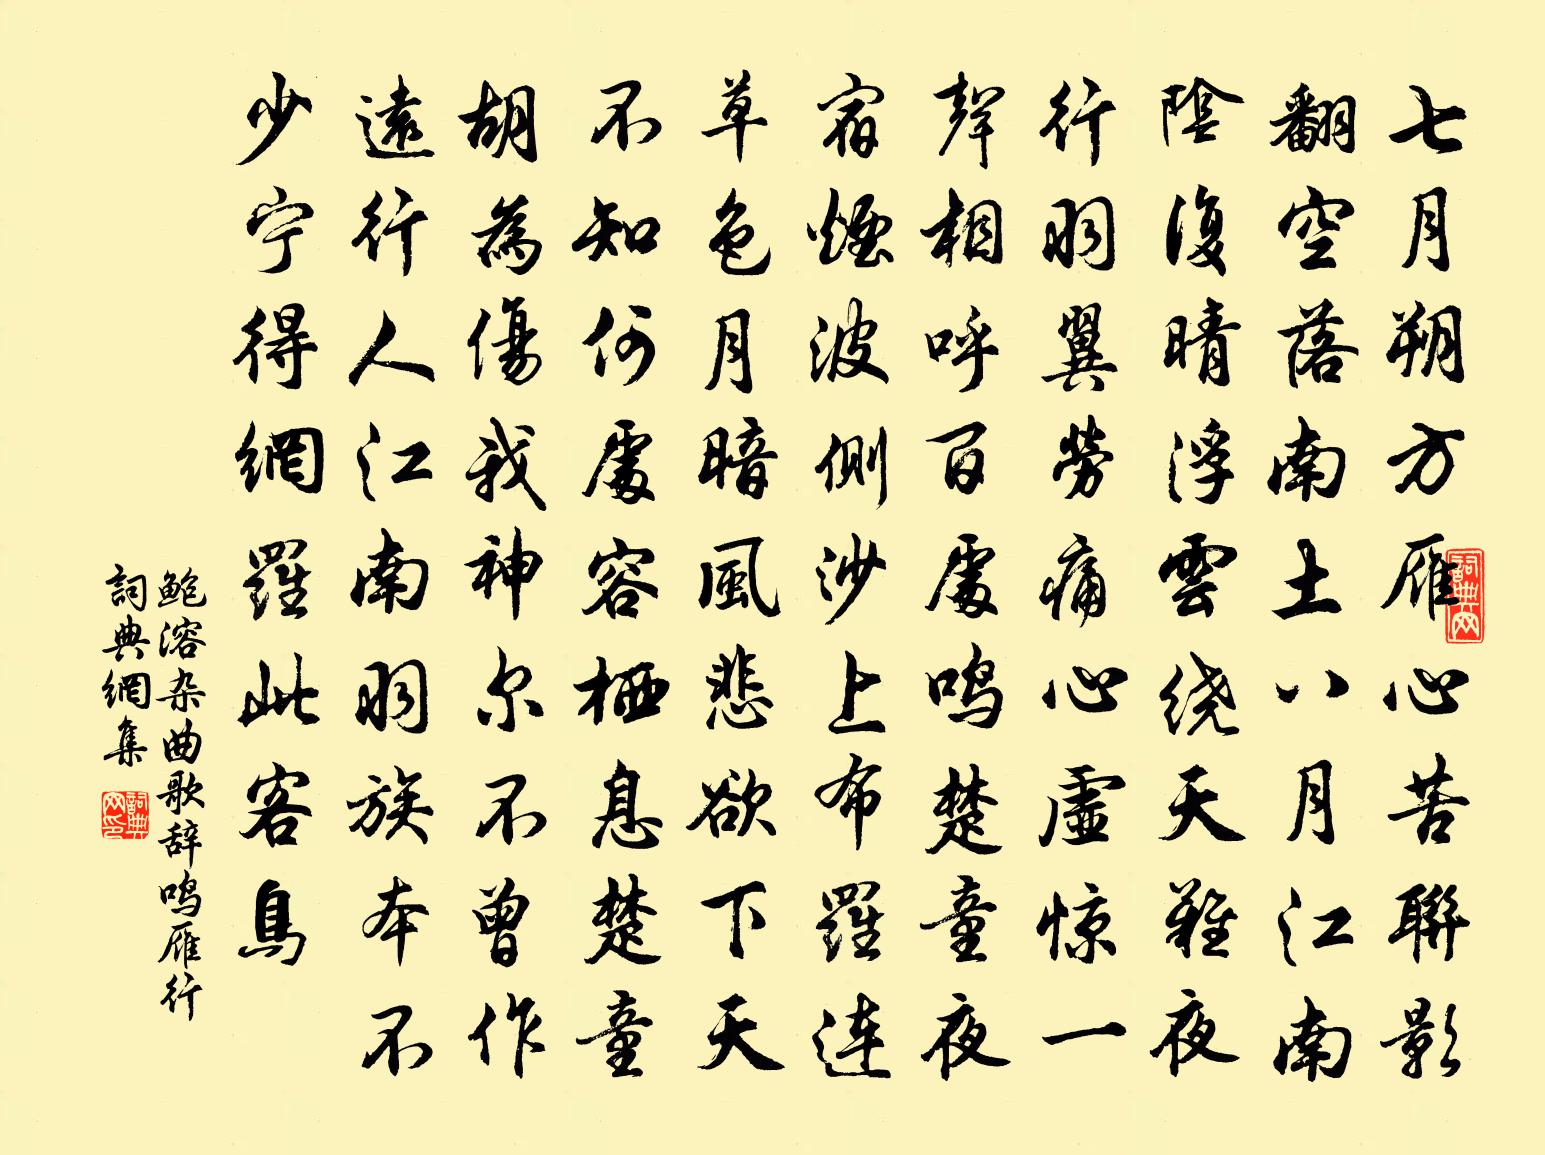 七月朔方雁心苦聯影
翻空落南土八月江南
陰復晴浮雲绕天難夜
行羽翼勞痛心虛惊一
聲相呼百處鸣楚童夜
宿煙波側沙上布羅連
草色月暗風悲欲下天
不知何處容栖息楚童
胡為傷我神尔不曾作
遠行人江南羽族本不
少宁得網羅此客鳥
鲍溶杂曲歌辞鸣雁行
詞典網集
詞典网
詞典网印